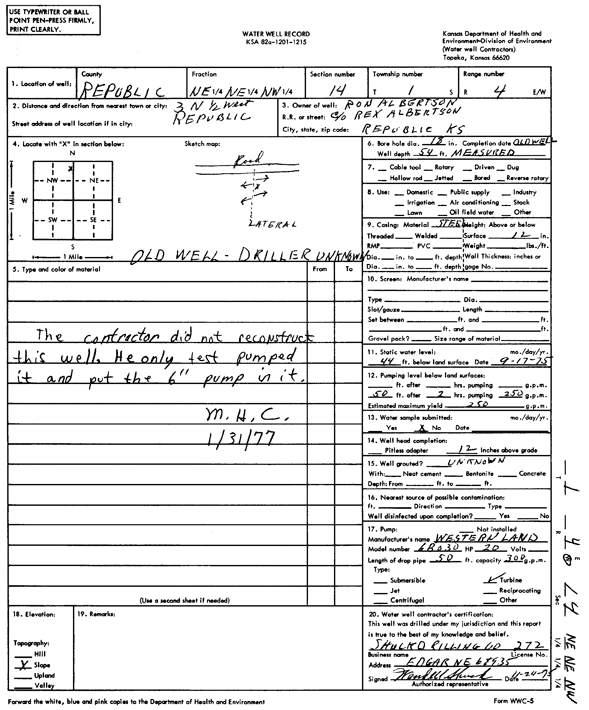 USE TYPEWRITER OR BALL
POINT PEN-PRESS FIRMLY,
PRINT CLEARLY.
WATER WELL RECORD
KSA 82a-1201-1215
Kansas Department of Health and
Environment-Division of Environment
(Water well Contractors)
Topeka, Kansas 66620
1. Location of well: County REPUBLIC Fraction NE 1/4 NE 1/4 NW 1/4 Section number 14 Township number T 1 S Range number R 4 E/W
2. Distance and direction from nearest town or city: 3 N 1/2 West
REPUBLIC
Street address of well location if in city:
3. Owner of well: RON ALBERTSON
R.R. or street: C/O REX ALBERTSON
City, state, zip code: REPUBLIC KS
4. Locate with "X" in section below:
N
NW NE
W E
SW SE
S
1 Mile
1 Mile
X
Sketch map:
Road
X
LATERAL
OLD WELL - DRILLER UNKNOWN
5. Type and color of material From To
The contractor did not reconstruct
this well. He only test pumped
it and put the 6" pump in it.
M.H.C.
1/31/77
(Use a second sheet if needed)
6. Bore hole dia. 18 in. Completion date OLD WELL
Well depth 54 ft. MEASURED
7. Cable tool Rotary Driven Dug
Hollow rod Jetted Bored Reverse rotary
8. Use: Domestic Public supply Industry
Irrigation Air conditioning Stock
Lawn Oil field water Other
9. Casing: Material STEEL Height: Above or below
Threaded Welded Surface 12 in.
RMP PVC Weight lbs./ft.
Dia. in. to ft. depth Wall Thickness: inches or
Dia. in. to ft. depth gage No.
10. Screen: Manufacturer's name
Type Dia.
Slot/gauze Length
Set between ft. and ft.
ft. and ft.
Gravel pack? Size range of material
11. Static water level: mo./day/yr.
44 ft. below land surface Date 9-17-75
12. Pumping level below land surfaces:
ft. after hrs. pumping g.p.m.
50 ft. after 2 hrs. pumping 250 g.p.m.
Estimated maximum yield 250 g.p.m.
13. Water sample submitted: mo./day/yr.
Yes X No Date
14. Well head completion:
Pitless adapter 12 Inches above grade
15. Well grouted? UNKNOWN
With: Neat cement Bentonite Concrete
Depth: From ft. to ft.
16. Nearest source of possible contamination:
ft. Direction Type
Well disinfected upon completion? Yes No
17. Pump: Not installed
Manufacturer's name WESTERN LAND
Model number HP 20 Volts
Length of drop pipe 50 ft. capacity 300 g.p.m.
Type:
Submersible ✓ Turbine
Jet Reciprocating
Centrifugal Other
18. Elevation:
Topography:
Hill
X Slope
Upland
Valley
19. Remarks:
20. Water well contractor's certification:
This well was drilled under my jurisdiction and this report
is true to the best of my knowledge and belief.
272
Business name License No.
Address EDGAR NE 68935
Signed Date
Authorized representative
Forward the white, blue and pink copies to the Department of Health and Environment
Form WWC-5
T 1 R 4 E Sec 14 1/4 1/4 1/4 NE NE NW